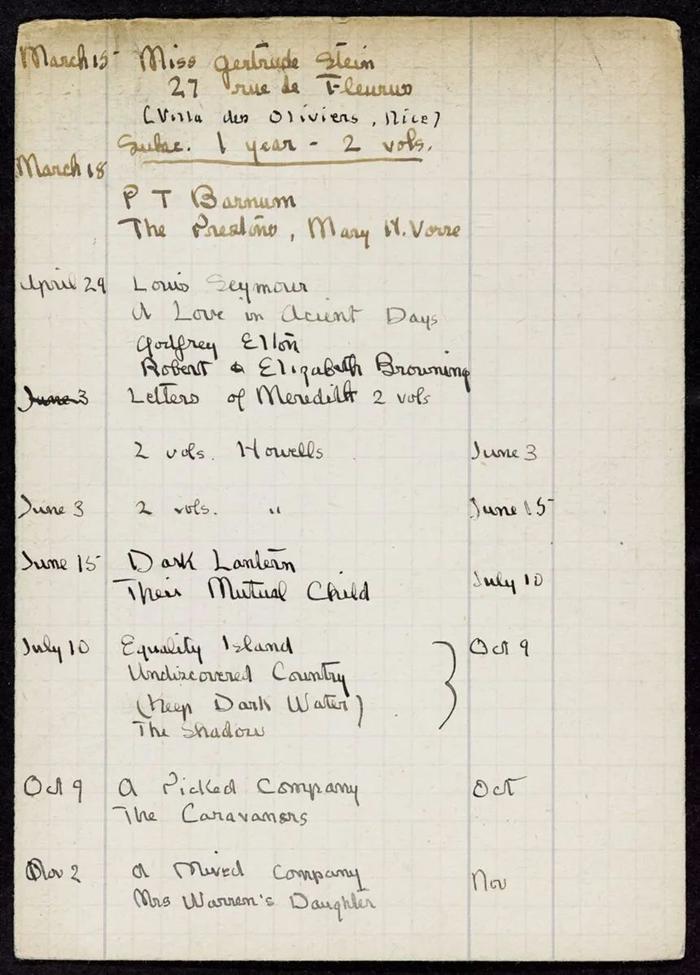 March 15 Miss Gertrude Stein
27 rue de Fleurus
(Villa des Oliviers, Nice)
Subsc. 1 year - 2 vols.
March 18
P T Barnum
The Prestons, Mary H. Vorse
April 29 Louis Seymour
A Love in Acient Days
Godfrey Elton
Robert & Elizabeth Browning
June 3 Letters of Meredith 2 vols
2 vols. Howells June 3
June 3 2 vols. " June 15
June 15 Dark Lantern
Their Mutual Child July 10
July 10 Equality Island Oct 9
Undiscovered Country
(Keep Dark Water)
The Shadow
Oct 9 A Picked Company Oct
The Caravaners
Nov 2 A Mixed Company Nov
Mrs Warren's Daughter